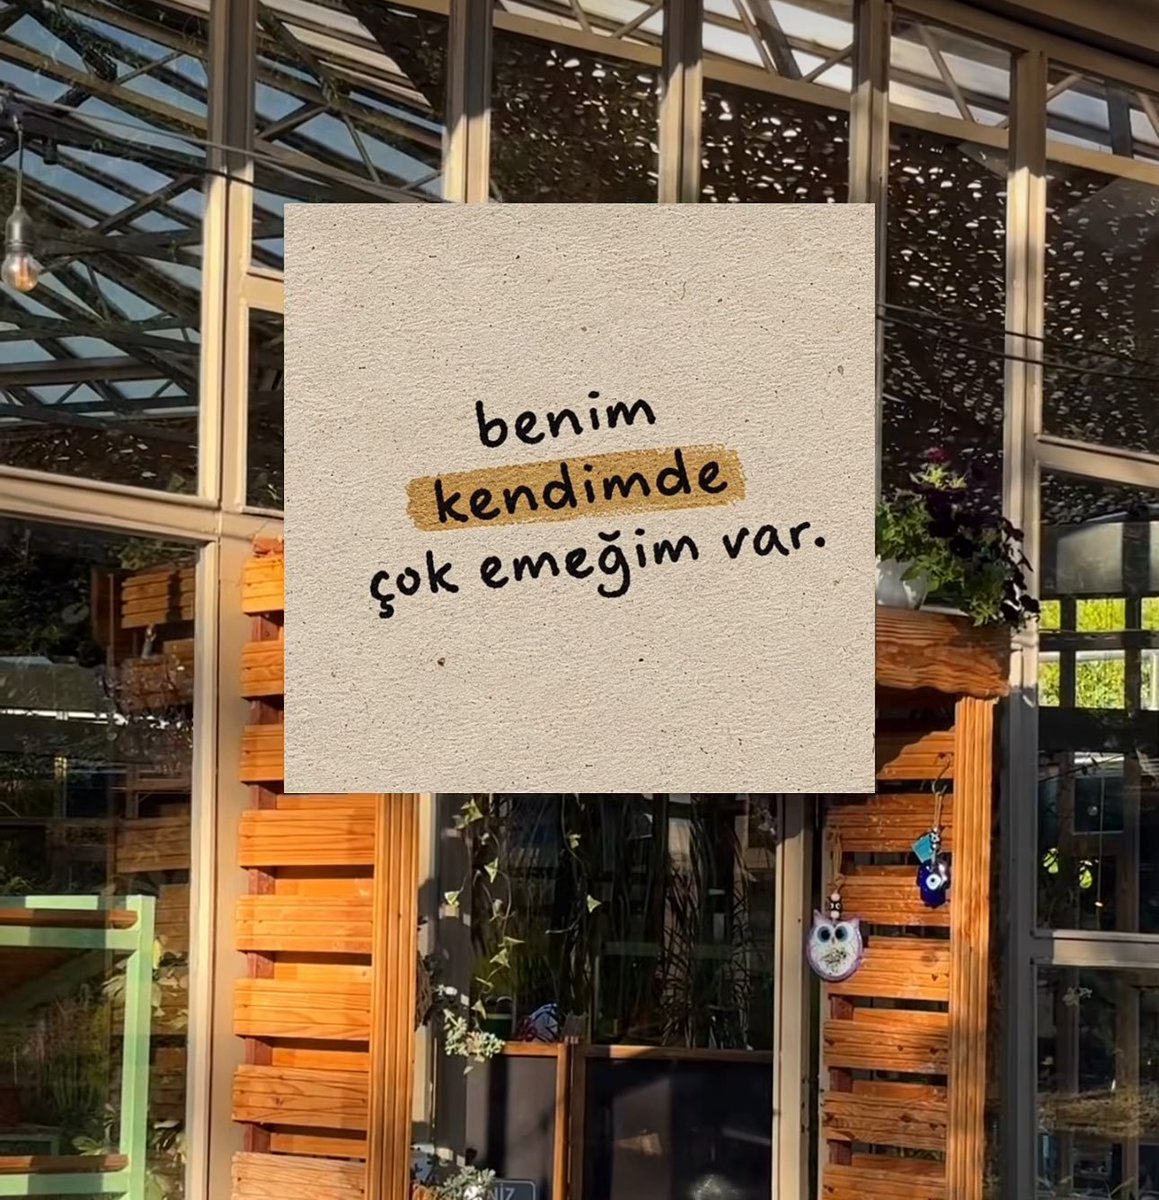 benim
kendimde
çok emeğim var.